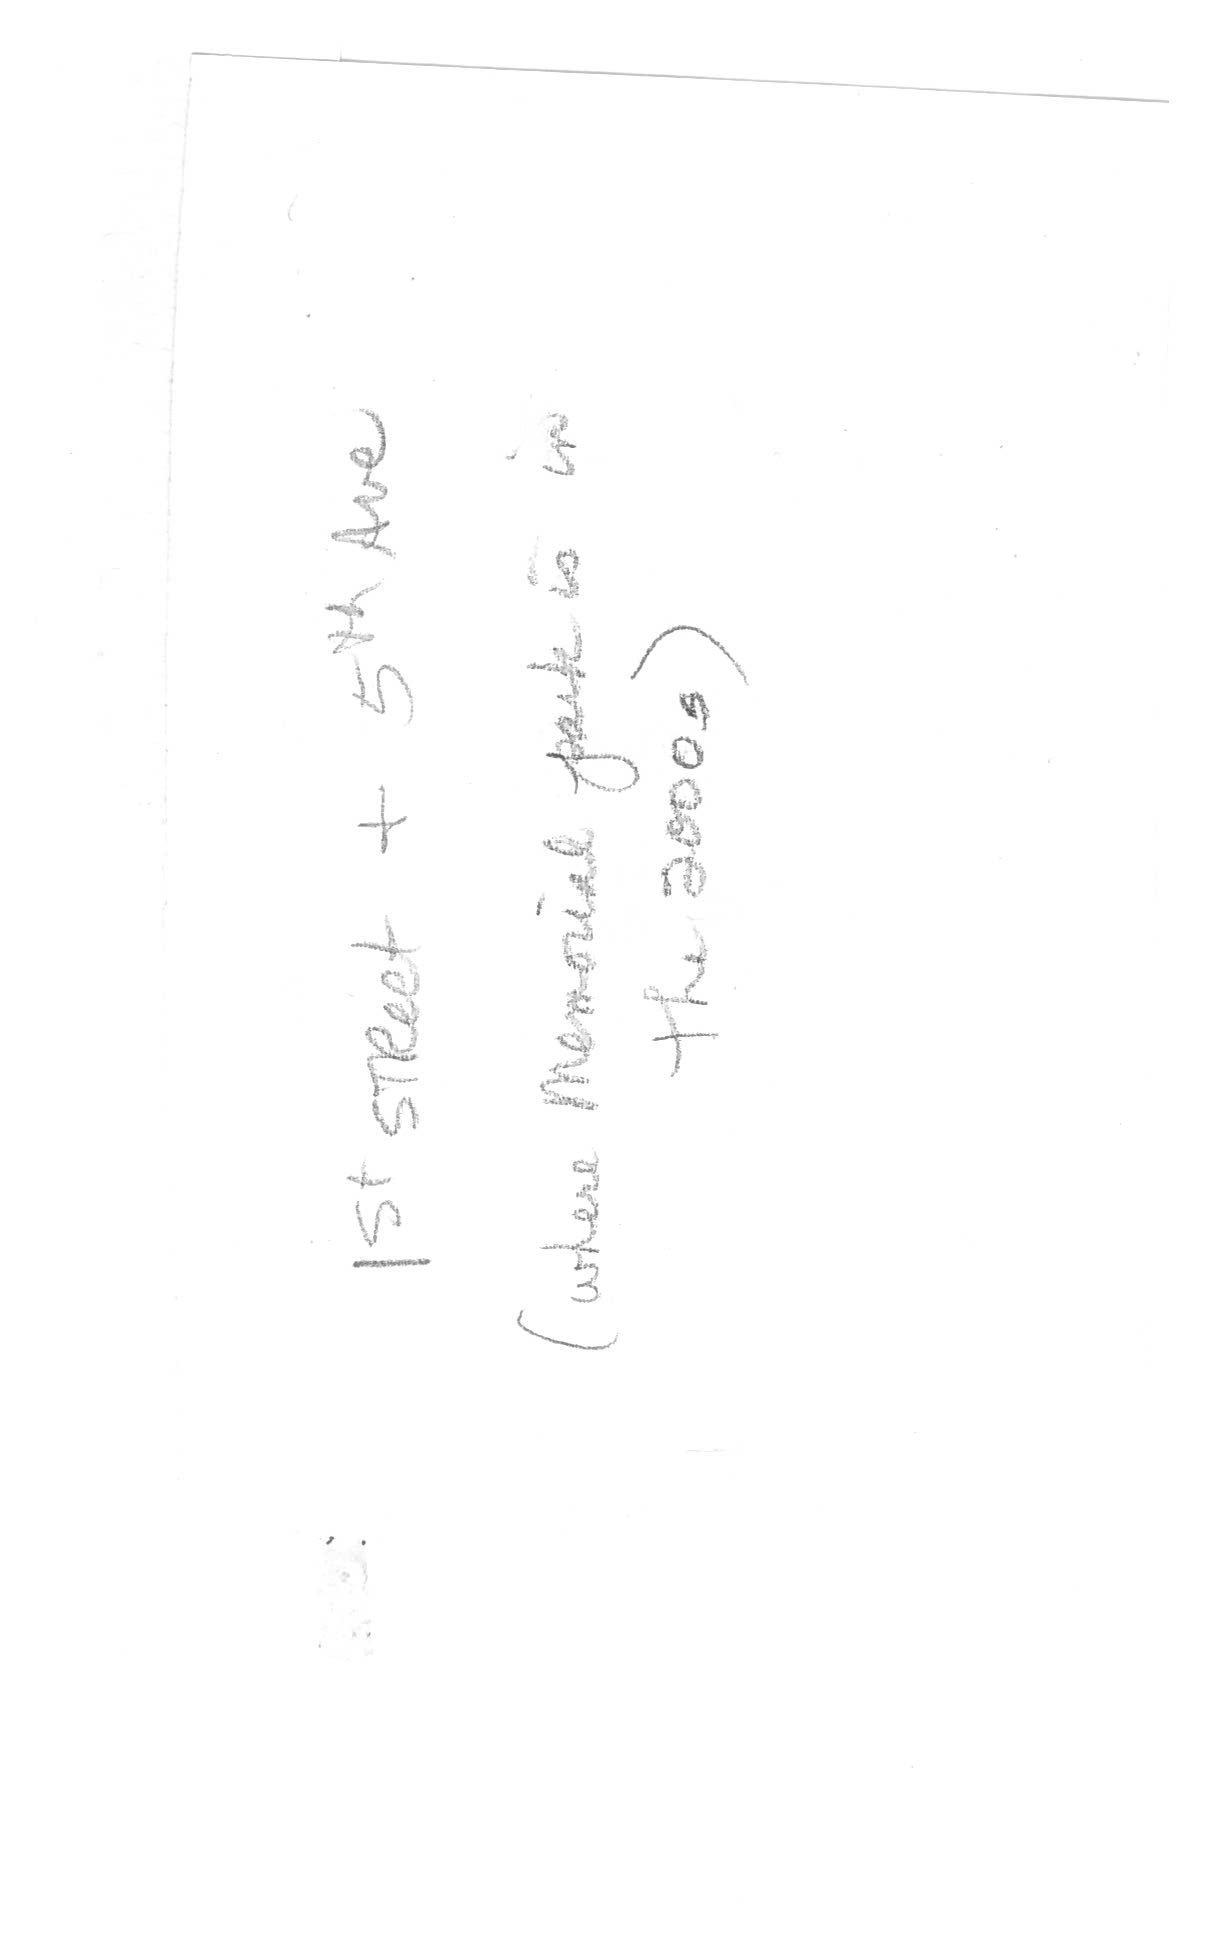 1st Street + 5th Ave
(where Memorial park is in
the 2000s)